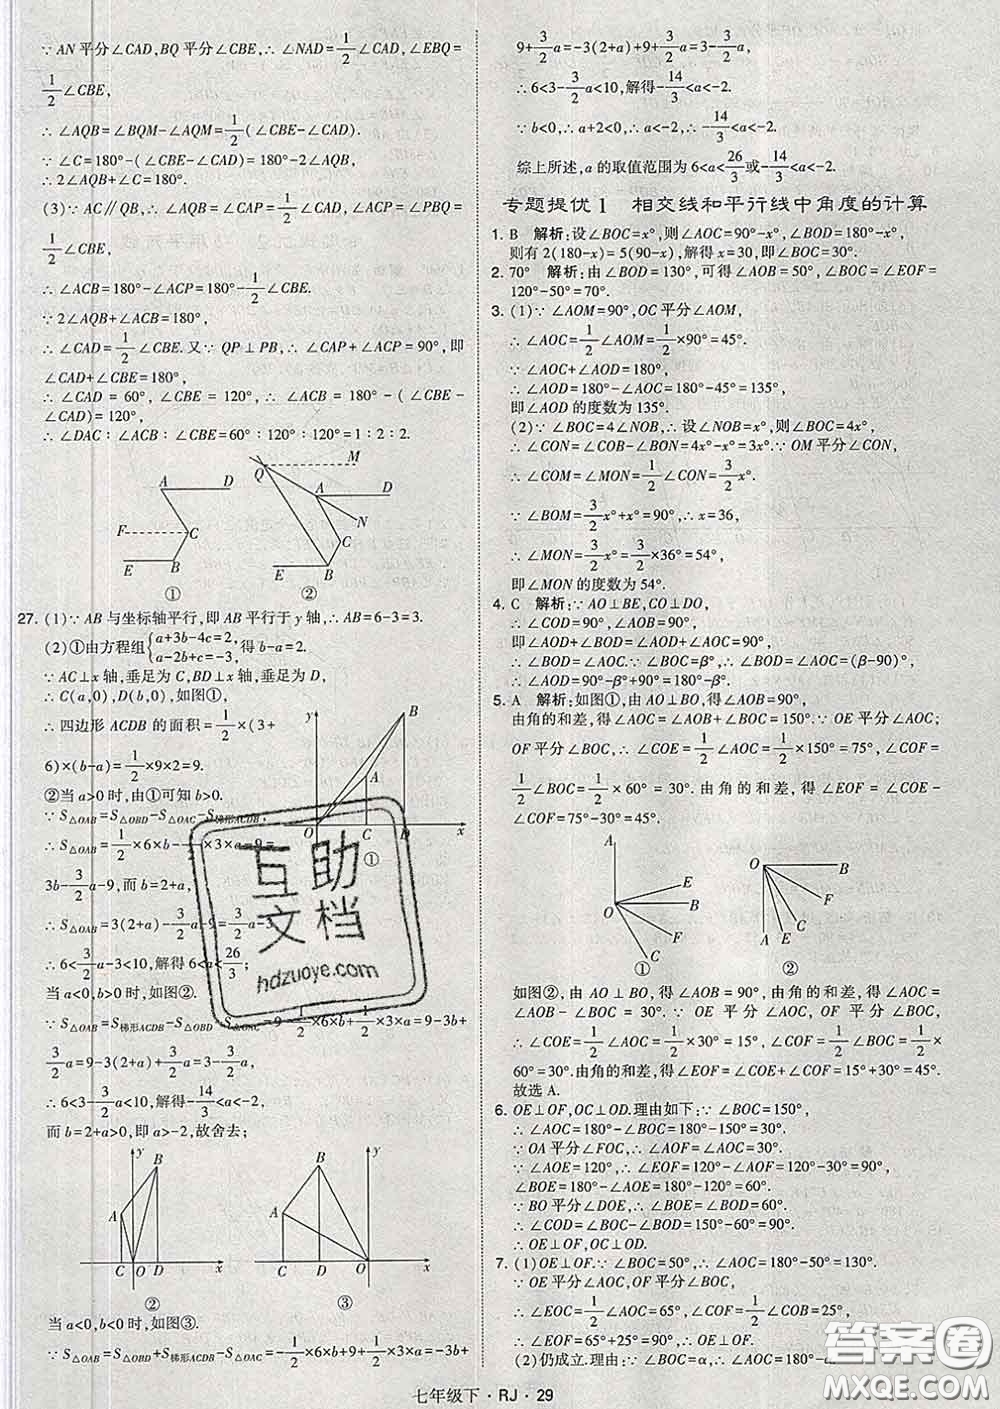 ∵ AN平分∠CAD,BQ平分∠CBE,∴ ∠NAD=1/2∠CAD,∠EBQ=
1/2∠CBE,
∴ ∠AQB=∠BQM-∠AQM=1/2(∠CBE-∠CAD).
∵ ∠C=180°-(∠CBE-∠CAD)=180°-2∠AQB,
∴ 2∠AQB+∠C=180°.
(3)∵ AC∥QB,∴ ∠AQB=∠CAP=1/2∠CAD,∠ACP=∠PBQ=
1/2∠CBE,
∴ ∠ACB=180°-∠ACP=180°-1/2∠CBE.
∵ 2∠AQB+∠ACB=180°,
∴ ∠CAD=1/2∠CBE.又∵ QP⊥PB,∴ ∠CAP+∠ACP=90°,即
∠CAD+∠CBE=180°,
∴ ∠CAD=60°,∠CBE=120°,∴ ∠ACB=180°-(∠CBE-
∠CAD)=120°,
∴ ∠DAC∶∠ACB∶∠CBE=60°∶120°∶120°=1∶2∶2.
A D F C E B ①
Q M A D N C E B ②
27. (1)∵ AB与坐标轴平行,即AB平行于y轴,∴ AB=6-3=3.
(2)①由方程组{a+3b-4c=2, a-2b+c=-3,得b-a=2.
∵ AC⊥x轴,垂足为C,BD⊥x轴,垂足为D,
∴ C(a,0),D(b,0),如图①,
∴ 四边形ACDB的面积=1/2×(3+
6)×(b-a)=1/2×9×2=9.
②当a>0时,由①可知b>0.
∵ S△OAB=S△OBD-S△OAC-S梯形ACDB,
∴ S△OAB=1/2×6×b-1/2×3×a-9=
3b-3/2a-9,而b=2+a,
∴ S△OAB=3(2+a)-3/2a-9=3/2a-3,
∴ 6<3/2a-3<10,解得6<a<26/3;
y B A O C D x ①
当a<0,b>0时,如图②.
∵ S△OAB=S梯形ACDB-S△OBD-S△OAC=9-1/2×6×b+1/2×3×a=9-3b+
3/2a=9-3(2+a)+3/2a=3-3/2a,
∴ 6<3-3/2a<10,解得-14/3<a<-2.
而b=2+a>0,即a>-2,故舍去;
y B A C O D x ②
B y A C D O x ③
当a<0,b<0时,如图③.
∵ S△OAB=S△OBD+S梯形ACDB-S△OAC=-1/2×6×b+9+1/2×3×a=-3b+
9+3/2a=-3(2+a)+9+3/2a=3-3/2a,
∴ 6<3-3/2a<10,解得-14/3<a<-2.
∵ b<0,∴ a+2<0,∴ a<-2,∴ -14/3<a<-2.
综上所述,a的取值范围为6<a<26/3或-14/3<a<-2.
专题提优1 相交线和平行线中角度的计算
1. B 解析:设∠BOC=x°,则∠AOC=90°-x°,∠BOD=180°-x°,
则有2(180-x)=5(90-x),解得x=30,即∠BOC=30°.
2. 70° 解析:由∠BOD=130°,可得∠AOB=50°,∠BOC=∠EOF=
120°-50°=70°.
3. (1)∵ ∠AOM=90°,OC平分∠AOM,
∴ ∠AOC=1/2∠AOM=1/2×90°=45°.
∵ ∠AOC+∠AOD=180°,
∴ ∠AOD=180°-∠AOC=180°-45°=135°,
即∠AOD的度数为135°.
(2)∵ ∠BOC=4∠NOB,∴ 设∠NOB=x°,∠BOC=4x°,
∴ ∠CON=∠COB-∠BON=4x°-x°=3x°.∵ OM平分∠CON,
∴ ∠COM=∠MON=1/2∠CON=3/2x°.
∵ ∠BOM=3/2x°+x°=90°,∴ x=36,
∴ ∠MON=3/2x°=3/2×36°=54°,
即∠MON的度数为54°.
4. C 解析:∵ AO⊥BE,CO⊥DO,
∴ ∠COD=90°,∠AOB=90°,
即∠AOD+∠BOD=∠AOD+∠AOC=90°,
∴ ∠BOD=∠AOC.∵ ∠BOC=β°,∴ ∠AOC=(β-90)°,
∴ ∠AOD=90°-β°+90°=180°-β°.
5. A 解析:如图①,由AO⊥BO,得∠AOB=90°,
由角的和差,得∠AOC=∠AOB+∠BOC=150°.∵ OE平分∠AOC,
OF平分∠BOC,∴ ∠COE=1/2∠AOC=1/2×150°=75°,∠COF=
1/2∠BOC=1/2×60°=30°.由角的和差,得∠EOF=∠COE-
∠COF=75°-30°=45°.
A E O B F C ①
O B F C E A ②
如图②,由AO⊥BO,得∠AOB=90°,由角的和差,得∠AOC=
∠AOB-∠BOC=30°.∵ OE平分∠AOC,OF平分∠BOC,
∴ ∠COE=1/2∠AOC=1/2×30°=15°,∠COF=1/2∠BOC=1/2×
60°=30°.由角的和差,得∠EOF=∠COE+∠COF=15°+30°=45°.
故选A.
6. OE⊥OF,OC⊥OD.理由如下:∵ ∠BOC=150°,
∴ ∠AOC=180°-∠BOC=180°-150°=30°.
∵ OA平分∠FOC,∴ ∠AOF=∠AOC=30°.
∵ ∠AOE=120°,∴ ∠EOF=∠AOE-∠AOF=120°-30°=90°,
∠BOE=180°-∠AOE=180°-120°=60°.
∵ BO平分∠DOE,∴ ∠BOE=∠BOD=60°.
∴ ∠COD=∠BOC-∠BOD=150°-60°=90°.
∴ OE⊥OF,OC⊥OD.
7. (1)OE⊥OF.∵ ∠BOC=50°,∴ ∠AOC=180°-50°=130°.
∵ OE平分∠AOC,OF平分∠BOC,
∴ ∠EOC=1/2∠AOC=65°,∠FOC=1/2∠COB=25°,
∴ ∠EOF=65°+25°=90°,∴ OE⊥OF.
(2)仍成立.理由:∵ ∠BOC=α,∴ ∠AOC=180°-α.
七年级下·RJ·29
互助
文档
hdzuoye.com
答案圈
MXQE.COM